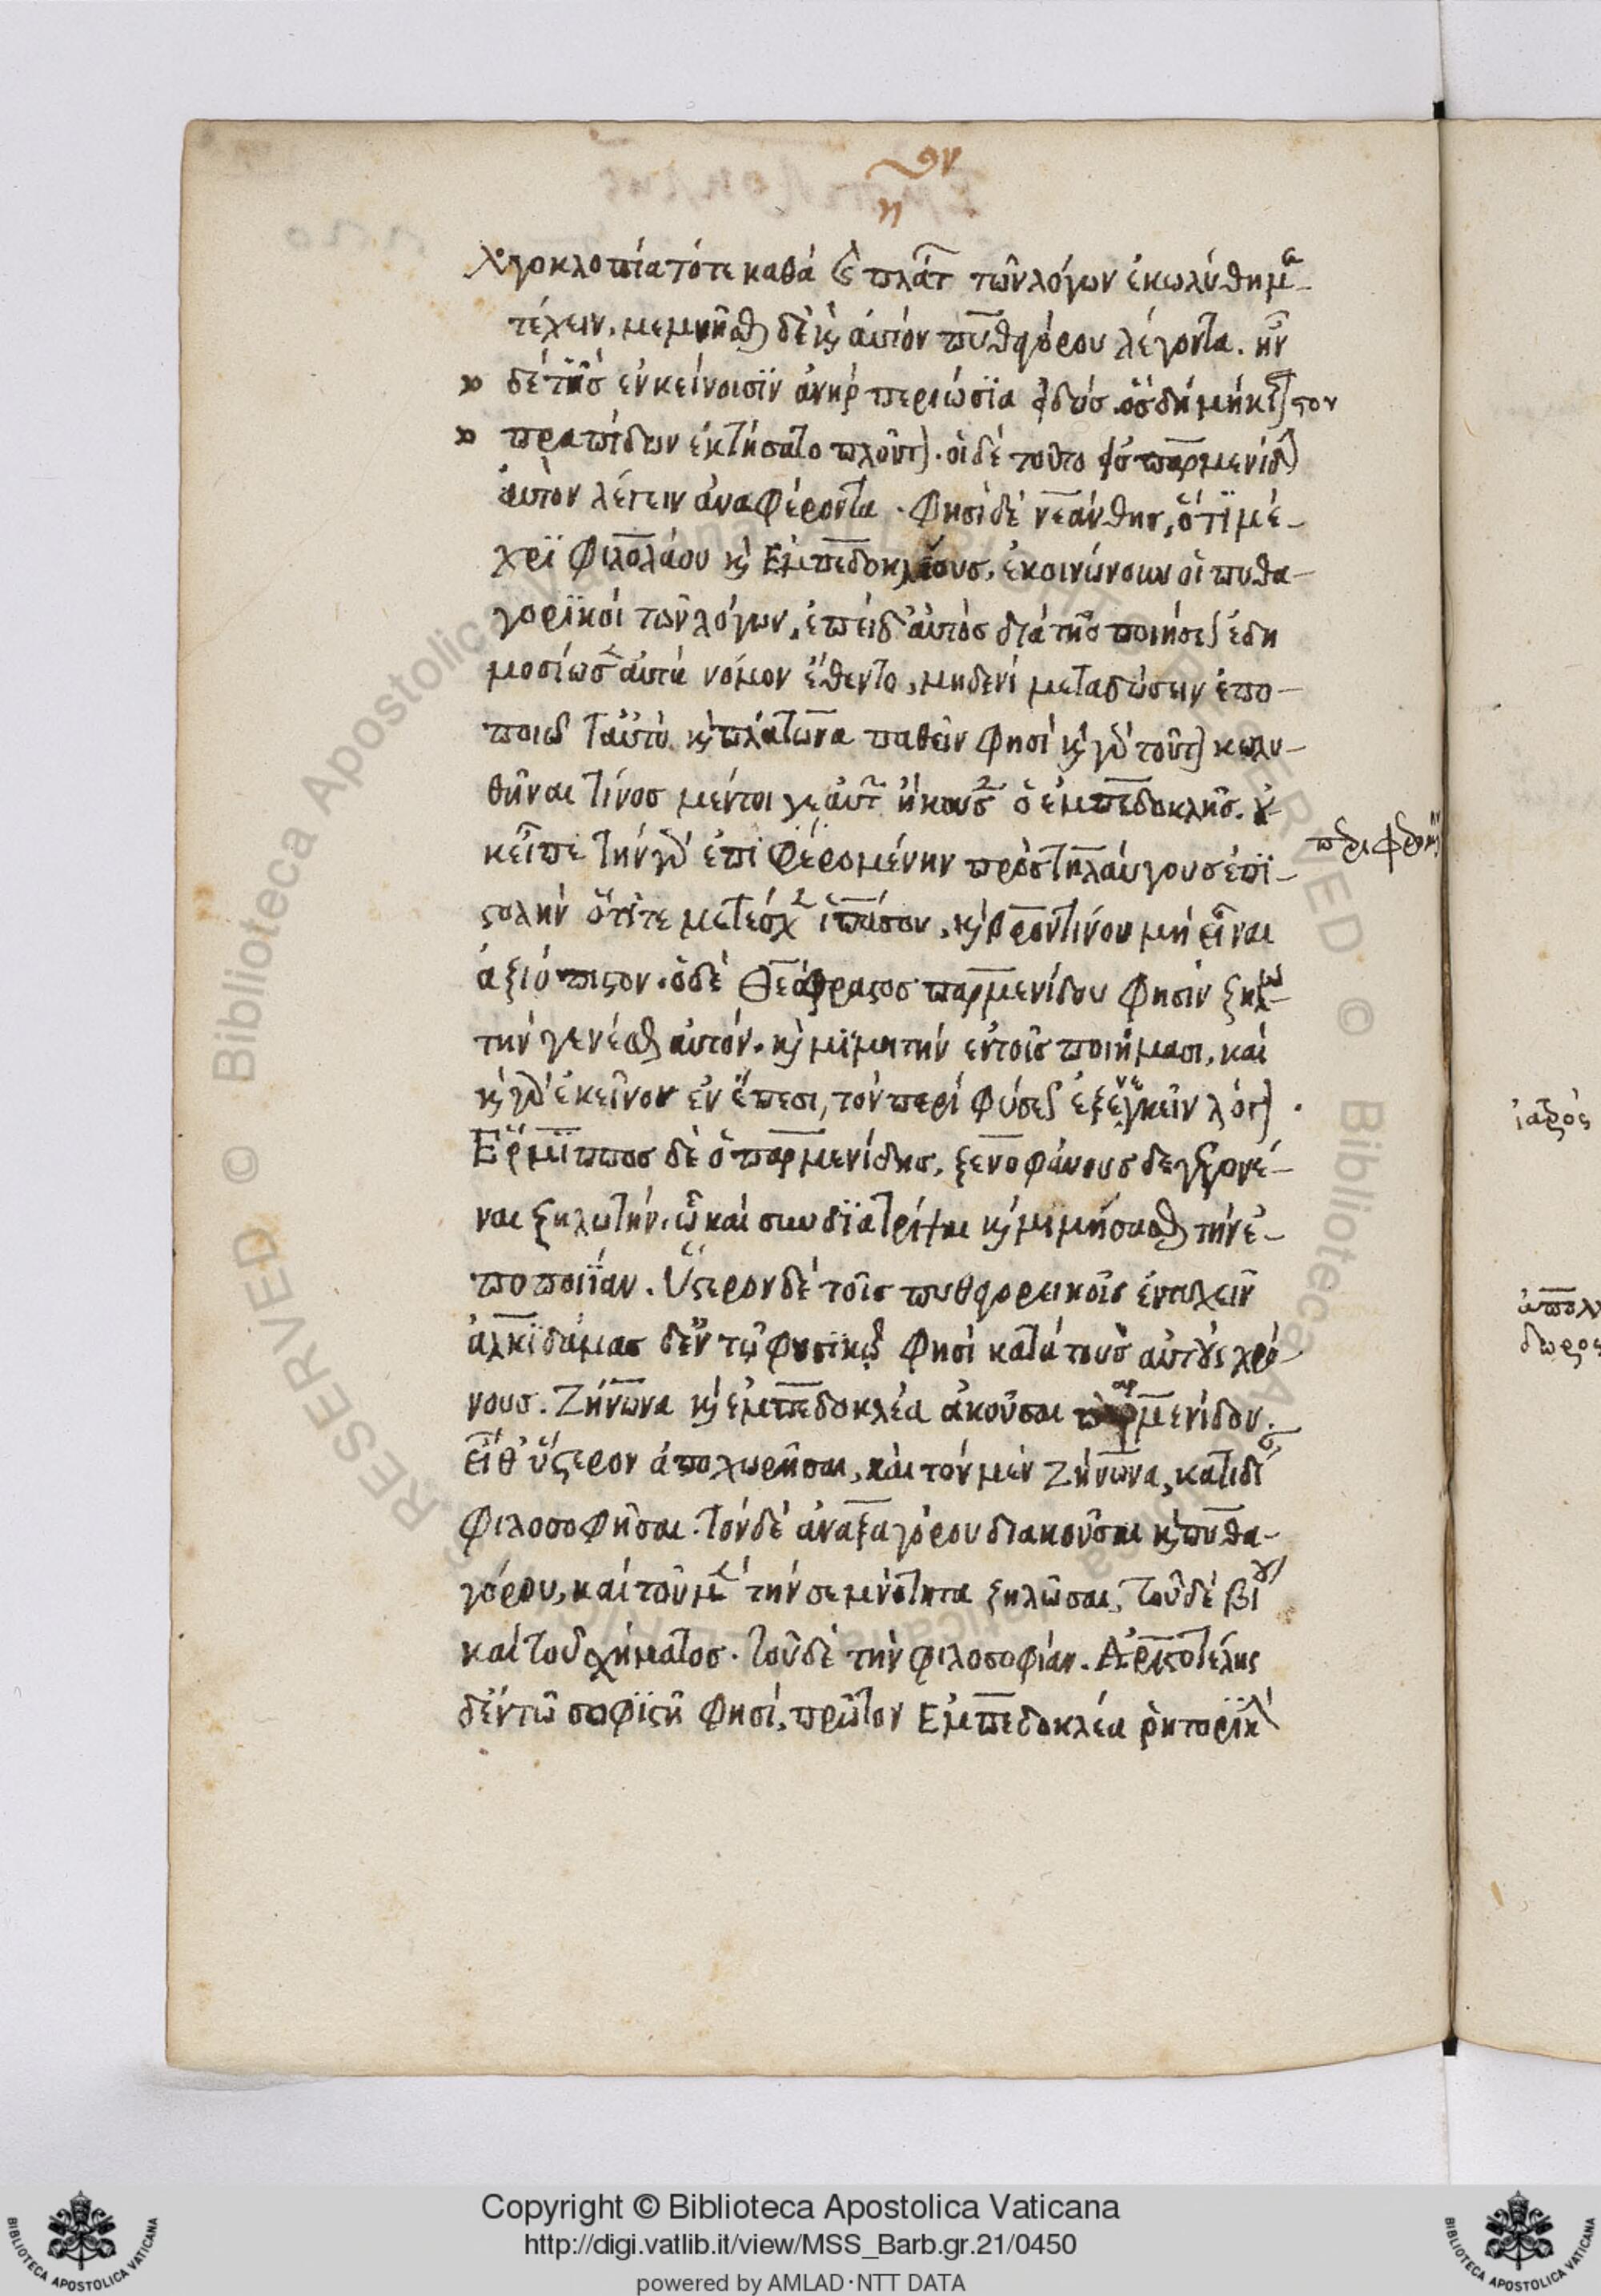 λογοκλοπία τότε καθὰ καὶ πλάτ τῶν λόγων ἐκωλύθη με-
τέχειν. μεμνῆσθαι δὲ καὶ αὐτὸν πυθαγόρου λέγοντα. ἦν
δέ τις ἐν κείνοισϊν ἀνὴρ περιώσϊα εἰδώς. ὃς δὴ μήκιστον
πραπίδων ἐκτήσατο πλοῦτον. οἱ δὲ τοῦτο εἰς παρμενίδην
αὐτὸν λέγειν ἀναφέροντα. Φησὶ δὲ νεάνθης, ὅτι μέ-
χρϊ Φιλολάου καὶ Ἐμπεδοκλέους, ἐκοινώνουν οἱ πυθα-
γορϊκοὶ τῶν λόγων, ἐπεὶ δ' αὐτὸς διὰ τῆς ποιήσεως ἐδη
μοσίωσεν αὐτὰ νόμον ἔθεντο, μηδενὶ μεταδώσειν ἐπο-
ποιῶ ταὐτὸ καὶ πλάτωνα παθεῖν φησὶ καὶ γὰρ τοῦτον κωλυ-
θῆναι τίνος μέντοι γε αὐτῶν ἤκουσεν ὁ ἐμπεδοκλῆς. οὐ-
κ εἶπε τὴν γὰρ ἐπιφερομένην πρὸς τηλαύγους ἐπϊ-
στολὴν ὅτι τε μετέσχεν ἱππάσου, καὶ βροντίνου μὴ εἶναι
ἀξιόπιστον. ὁ δὲ Θεόφραστος παρμενίδου φησὶν ζηλω-
τὴν γενέσθαι αὐτόν. καὶ μϊμητὴν ἐν τοῖς ποιήμασι, καὶ
καὶ γὰρ ἐκεῖνον ἐν ἔπεσι, τὸν περὶ φύσεως ἐξενεγκεῖν λόγον.
Ἕρμϊππος δὲ ὁ παρμενίδης, ξενοφάνους δὲ γεγονέ-
ναι ζηλωτήν. ᾧ καὶ συνδϊατρῖψαι καὶ μϊμήσασθαι τὴν ἐ-
ποποιΐαν. ὕστερον δὲ τοῖς πυθαγορεικοῖς ἐντυχεῖν
ἀλκϊδάμας δ' ἐν τῷ φυσϊκῷ φησὶ κατὰ τοὺς αὐτοὺς χρό-
νους. Ζήνωνα καὶ ἐμπεδοκλέα ἀκοῦσαι παρμενίδου.
εἶθ' ὕστερον ἀποχωρῆσαι, καὶ τὸν μὲν Ζήνωνα, κατιδί
φιλοσοφῆσαι. τὸν δὲ ἀναξαγόρου διακοῦσαι καὶ πυθα-
γόρου, καὶ τοῦ μὲν τὴν σεμνότητα ζηλῶσαι, τοῦ δὲ βίου
καὶ τοῦ σχήματος. τοῦ δὲ τὴν φιλοσοφίαν. Ἀριστοτέλης
δ' ἐν τῷ σοφϊστῇ φησί, πρῶτον Ἐμπεδοκλέα ῥητορϊκὴν
ἰατρὸς
ἀπολλ
δωρος
Copyright © Biblioteca Apostolica Vaticana
http://digi.vatlib.it/view/MSS_Barb.gr.21/0450
powered by AMLAD·NTT DATA